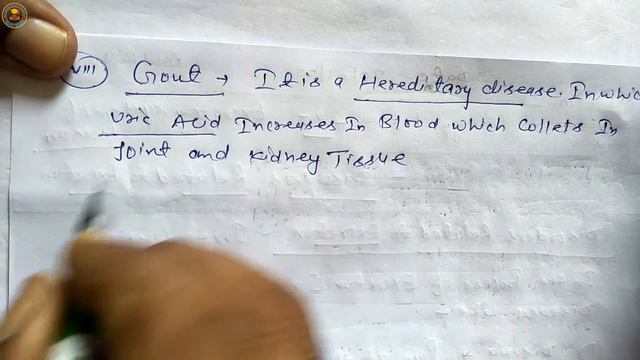 VIII Gout → It is a Hereditary disease. In whic
uric Acid Increases In Blood which Collets In
Joint and kidney Tissue